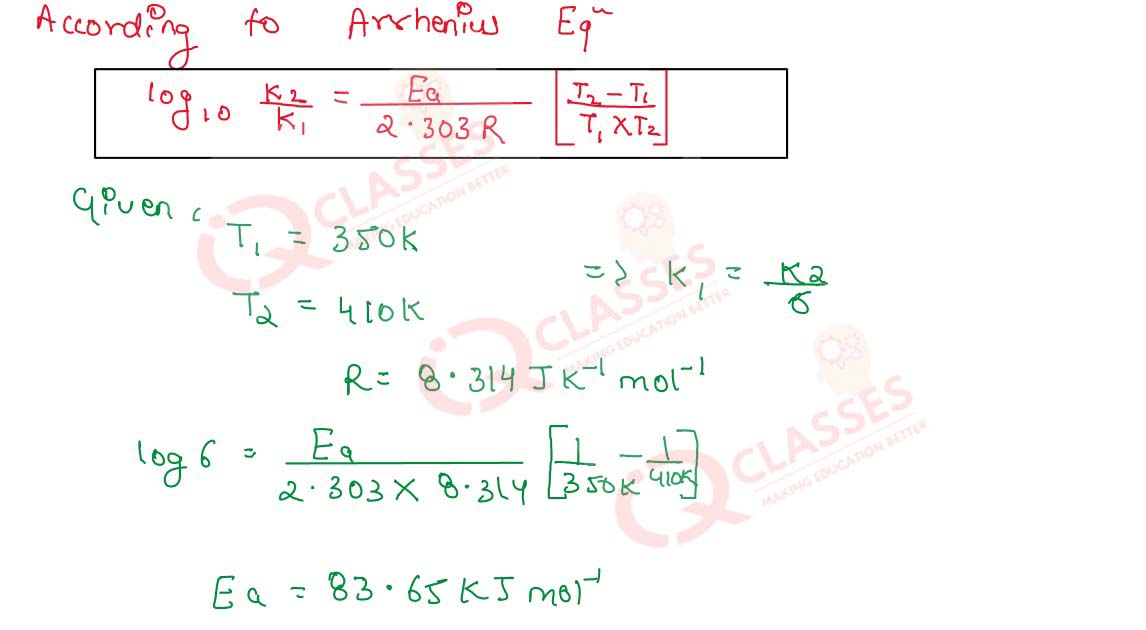 According to Arrhenius Eqⁿ
log₁₀ K₂/K₁ = Ea/2·303R [T₂ – T₁/T₁ × T₂]
Given :
T₁ = 350K
=> K₁ = K2/6
T₂ = 410K
R = 8·314 J K⁻¹ mol⁻¹
log 6 = Ea/2·303 × 8·314 [1/350K – 1/410K]
Ea = 83·65 KJ mol⁻¹
IQ CLASSES
MAKING EDUCATION BETTER
IQ CLASSES
MAKING EDUCATION BETTER
IQ CLASSES
MAKING EDUCATION BETTER